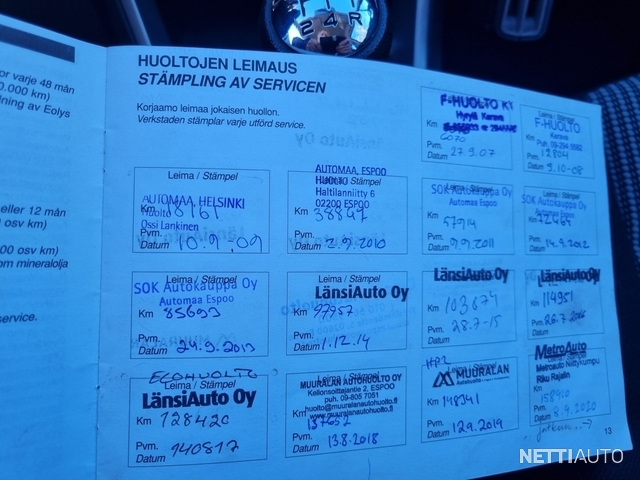 or varje 48 mån
0.000 km)
lning av Eolys
eller 12 mån
osv km)
00 osv km)
om mineralolja
service.
2 4 R
HUOLTOJEN LEIMAUS
STÄMPLING AV SERVICEN
Korjaamo leimaa jokaisen huollon.
Verkstaden stämplar varje utförd service.
F-HUOLTO KY
Hyrylä Kerava
Km
6070
Pvm. 27.9.07
Datum
Leima / Stämpel
F-HUOLTO
Kerava
Puh. 09-294 9582
Km 12804
Pvm. 9.10-08
Datum
Leima / Stämpel
AUTOMAA, HELSINKI
Huolto
Km 18161
Ossi Lankinen
Pvm.
Datum 10.9.-09
AUTOMAA, ESPOO
Leima / Stämpel
HUOLTO
Haltilanniitty 6
Km 38847
02200 ESPOO
Pvm.
Datum 2.9.2010
SOK Autokauppa Oy
Automaa Espoo
Km 57914
Pvm.
Datum 9.9.2011
Leima / Stämpel
SOK Autokauppa Oy
Automaa Espoo
Km
Pvm.
Datum 14.9.2012
Leima / Stämpel
SOK Autokauppa Oy
Automaa Espoo
Km 85693
Pvm.
Datum 24.9.2013
Leima / Stämpel
LänsiAuto Oy
Km 97957
Pvm.
Datum 1.12.14
LänsiAuto Oy
Km 103674
Pvm. 28.7-15
Datum
LänsiAuto Oy
Km 114951
Pvm.
Datum
ECOHUOLTO
Leima / Stämpel
LänsiAuto Oy
Km 128420
Pvm.
Datum 140817
Leima / Stämpel
MUURALAN AUTOHUOLTO OY
Kellonsoittajantie 2, ESPOO
puh. 09-805 7051
huolto@muuralanautohuolto.fi
www.muuralanautohuolto.fi
Km 137652
Pvm.
Datum 13.8.2018
Leima / Stämpel
MUURALAN
Km 148341
Pvm.
Datum 12.9.2019
MetroAuto
Metroauto Niittykumpu
Riku Rajalin
Km 158910
Pvm.
Datum 8.9.2020
jatkuu..→
13
NETTIAUTO